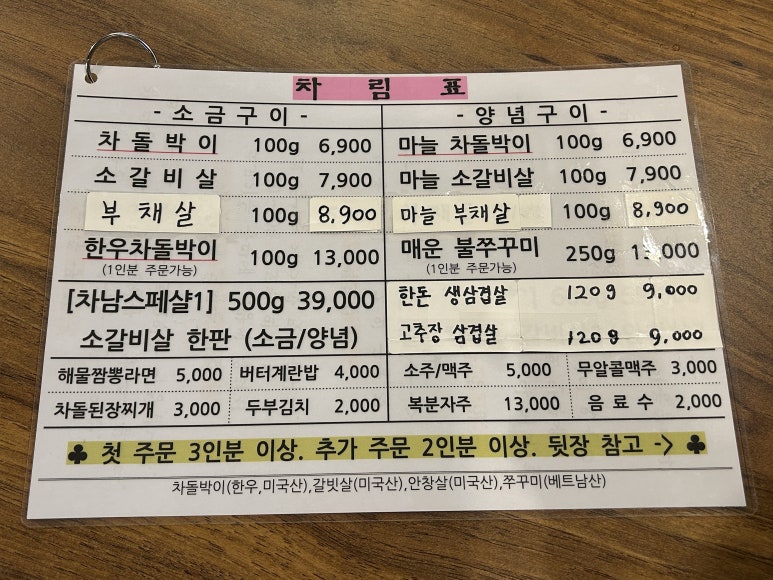 차 림 표
- 소 금 구 이 -
차 돌 박 이 100g 6,900
소 갈 비 살 100g 7,900
부 채 살 100g 8,900
한우차돌박이 100g 13,000
(1인분 주문가능)
[차남스페샬1] 500g 39,000
소갈비살 한판 (소금/양념)
- 양 념 구 이 -
마늘 차돌박이 100g 6,900
마늘 소갈비살 100g 7,900
마늘 부채살 100g 8,900
매운 불쭈꾸미 250g
(1인분 주문가능)
한돈 생삼겹살 120g 9,000
고추장 삼겹살 120g 9,000
해물짬뽕라면 5,000 버터계란밥 4,000 소주/맥주 5,000 무알콜맥주 3,000
차돌된장찌개 3,000 두부김치 2,000 복분자주 13,000 음 료 수 2,000
♣ 첫 주문 3인분 이상. 추가 주문 2인분 이상. 뒷장 참고 -> ♣
차돌박이(한우,미국산),갈빗살(미국산),안창살(미국산),쭈꾸미(베트남산)